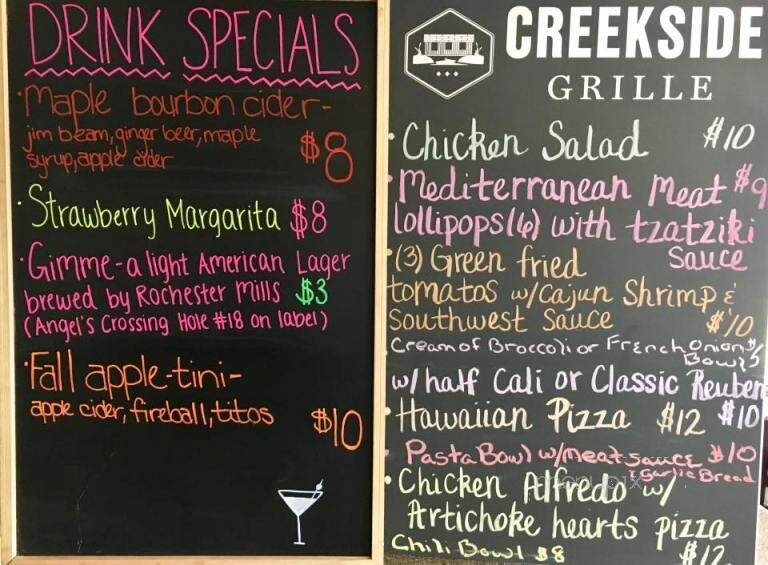 DRINK SPECIALS
· Maple bourbon cider-
jim beam, ginger beer, maple
syrup, apple cider $8
· Strawberry Margarita $8
· Gimme-a light American Lager
brewed by Rochester Mills $3
(Angel's Crossing Hole #18 on label)
· Fall apple-tini-
apple cider, fireball, titos $10
CREEKSIDE
GRILLE
· Chicken Salad $10
· Mediterranean Meat $9
lollipops (6) with tzatziki
Sauce
· (3) Green fried
tomatos w/Cajun Shrimp &
Southwest Sauce $10
Cream of Broccoli or French Onion
Bowl
w/ half Cali or Classic Reuben
$10
· Hawaiian Pizza $12
· Pasta Bowl w/meat sauce $10
& Garlic Bread
· Chicken Alfredo w/
Artichoke hearts pizza
$12
Chili Bowl $8